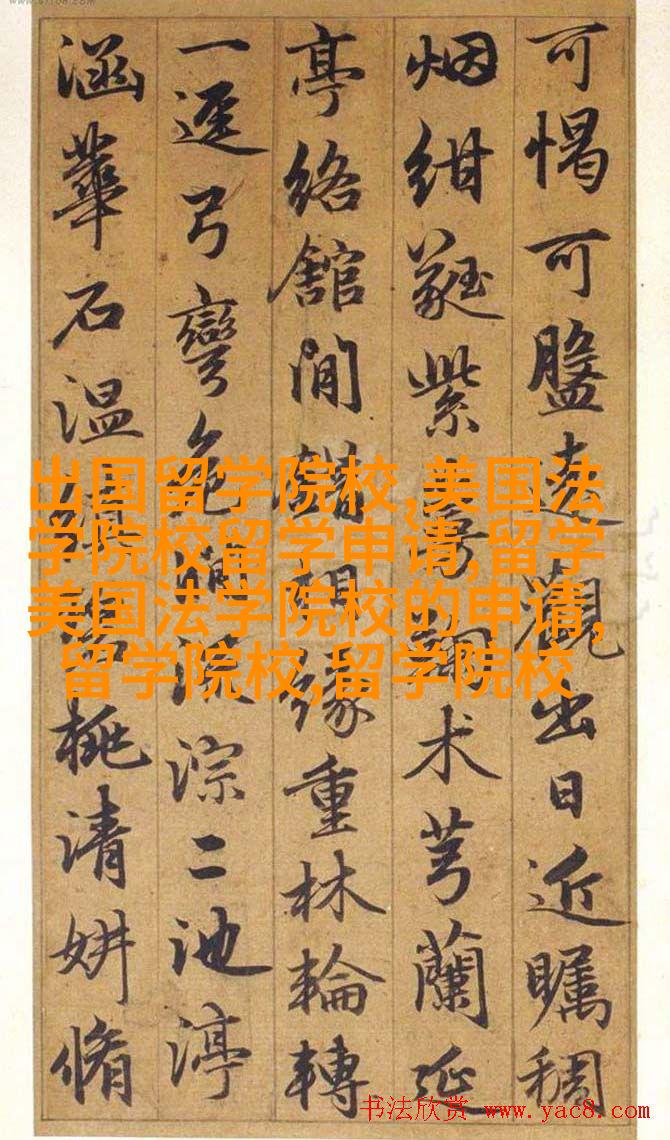 出国留学院校,美国法
学院校留学申请,留学
美国法学院校的申请,
留学院校,留学院校
可愒可盥遠觀出日近矚稠
烟紺蕤紫術芎蘭延
亭絡館間緣重林輪轉
一逕弓彎色深淙二池渟
涵華石温桃清妍脩
书法欣赏 www.yac8.com